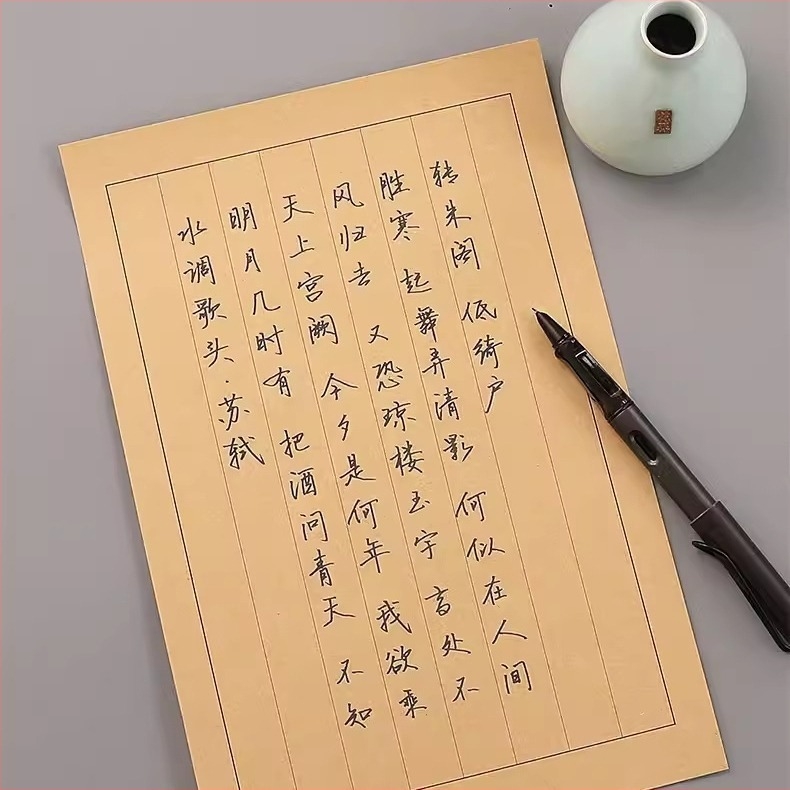 水调歌头·苏轼
明月几时有 把酒问青天 不知
天上宫阙 今夕是何年 我欲乘
风归去 又恐琼楼玉宇 高处不
胜寒 起舞弄清影 何似在人间
转朱阁 低绮户